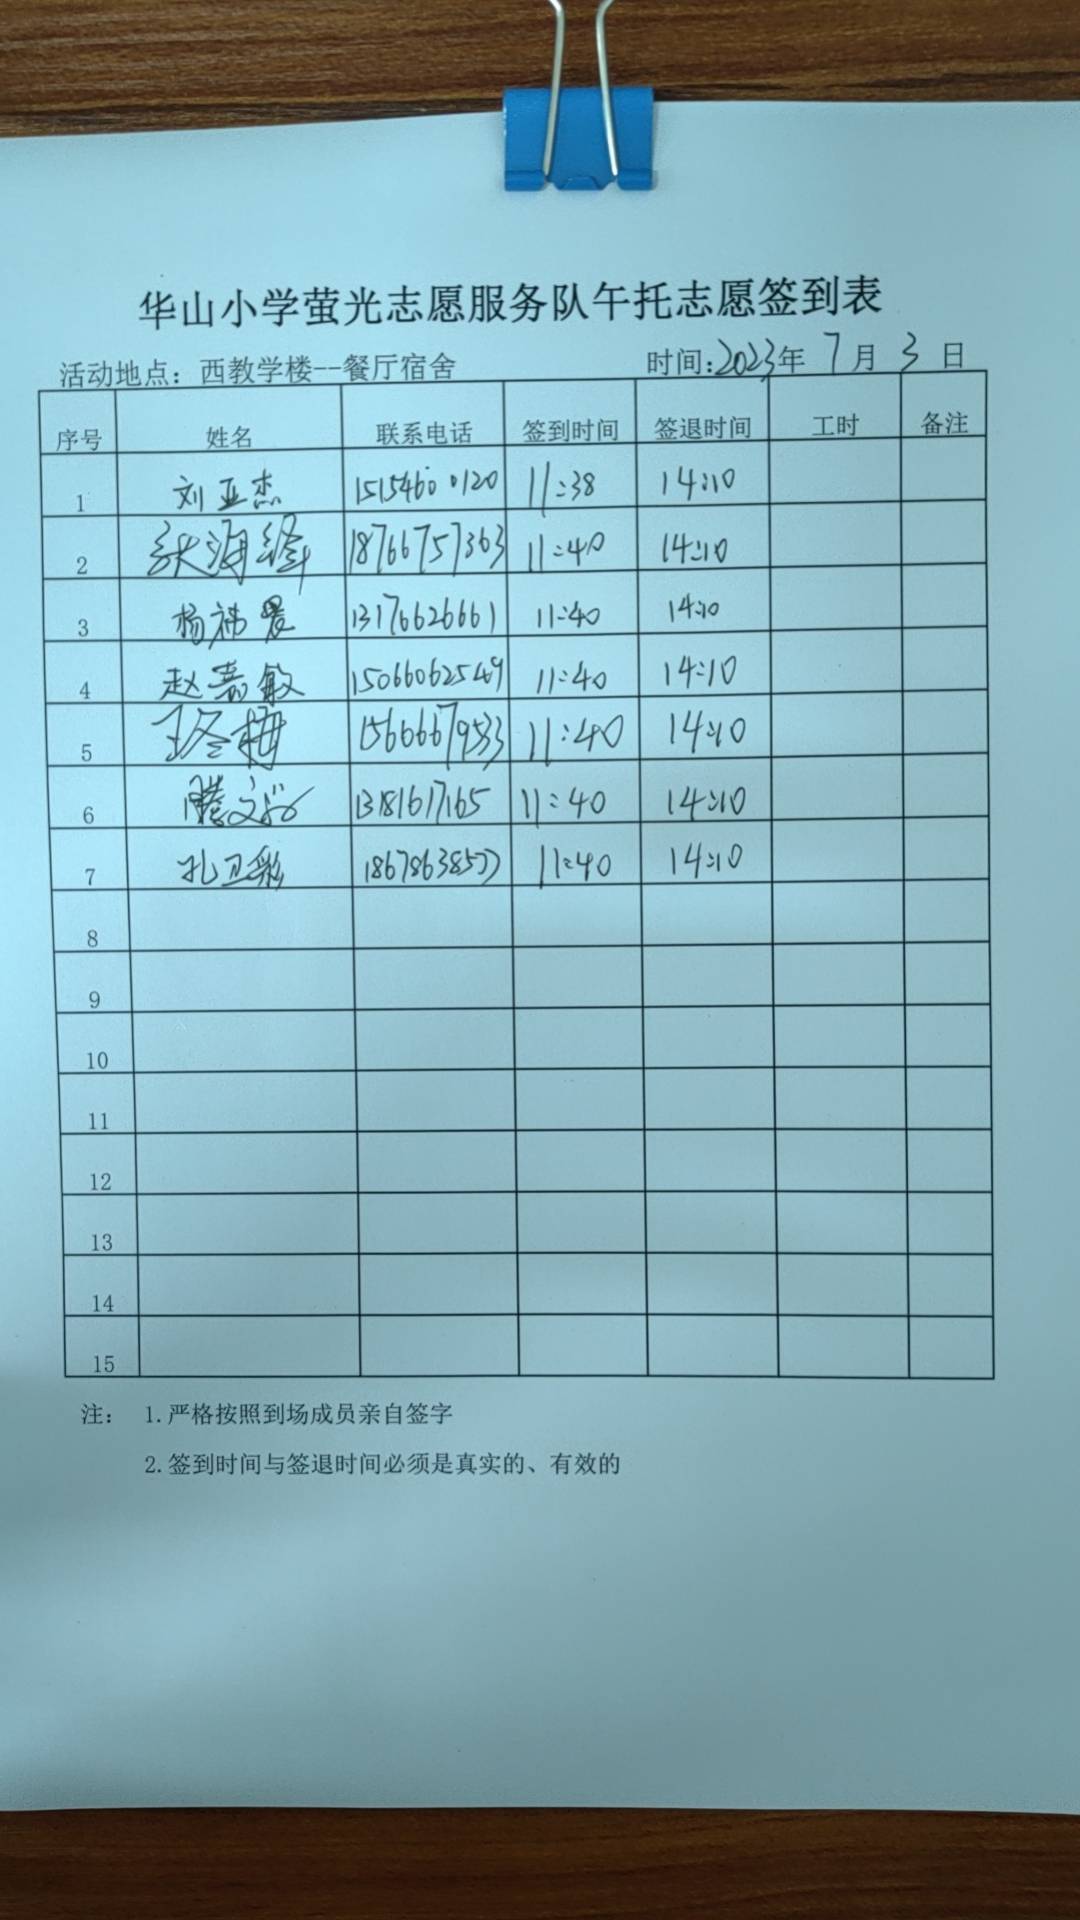 华山小学萤光志愿服务队午托志愿签到表
活动地点：西教学楼--餐厅宿舍 时间:2023年 7月 3日
序号 姓名 联系电话 签到时间 签退时间 工时 备注
1 刘亚杰 15154600120 11:38 14:10
2 张海 18766757363 11:40 14:10
3 杨祎晨 13176626661 11:40 14:10
4 赵嘉敏 11:40 14:10
5 王冬梅 15666679533 11:40 14:10
6 滕文 13181617165 11:40 14:10
7 孔卫彩 18678638577 11:40 14:10
8
9
10
11
12
13
14
15
注： 1.严格按照到场成员亲自签字
2.签到时间与签退时间必须是真实的、有效的